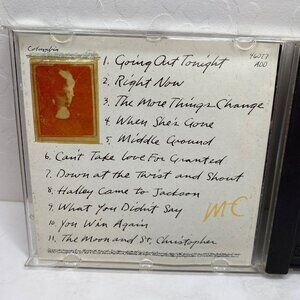 Columbia
46077
ADD
1. Going Out Tonight
2. Right Now
3. The More Things Change
4. When She's Gone
5. Middle Ground
6. Can't Take Love For Granted
7. Down at the Twist and Shout
8. Halley Came to Jackson
9. What You Didn't Say
10. You Win Again
11. The Moon and St. Christopher
MC